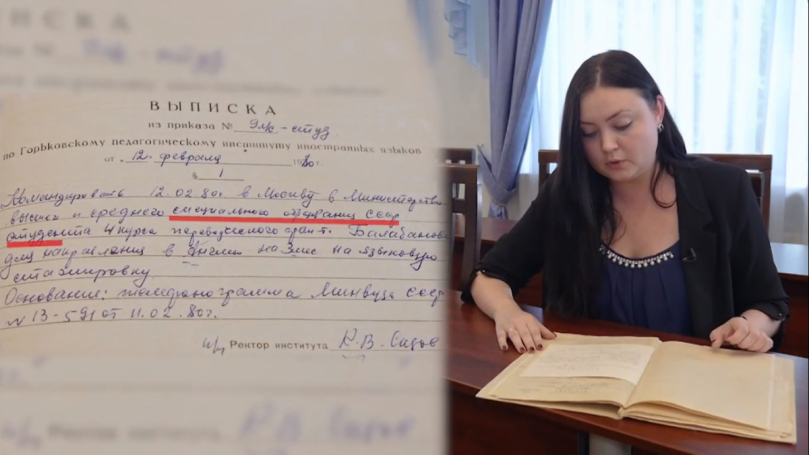 ВЫПИСКА
из приказа № 9лс-студ.
по Горьковскому педагогическому институту иностранных языков
от "12" февраля 1980г.
§ 1
Командировать 12.02.80г. в Москву в Министерство
высшего и среднего специального образования СССР
студента 4 курса переводческого фак-т. Балабанова
для направления в Англию на 3 мес на языковую
стажировку
Основание: телефонограмма Минвуза СССР
№ 13-591 от 11.02.80г.
Ректор института